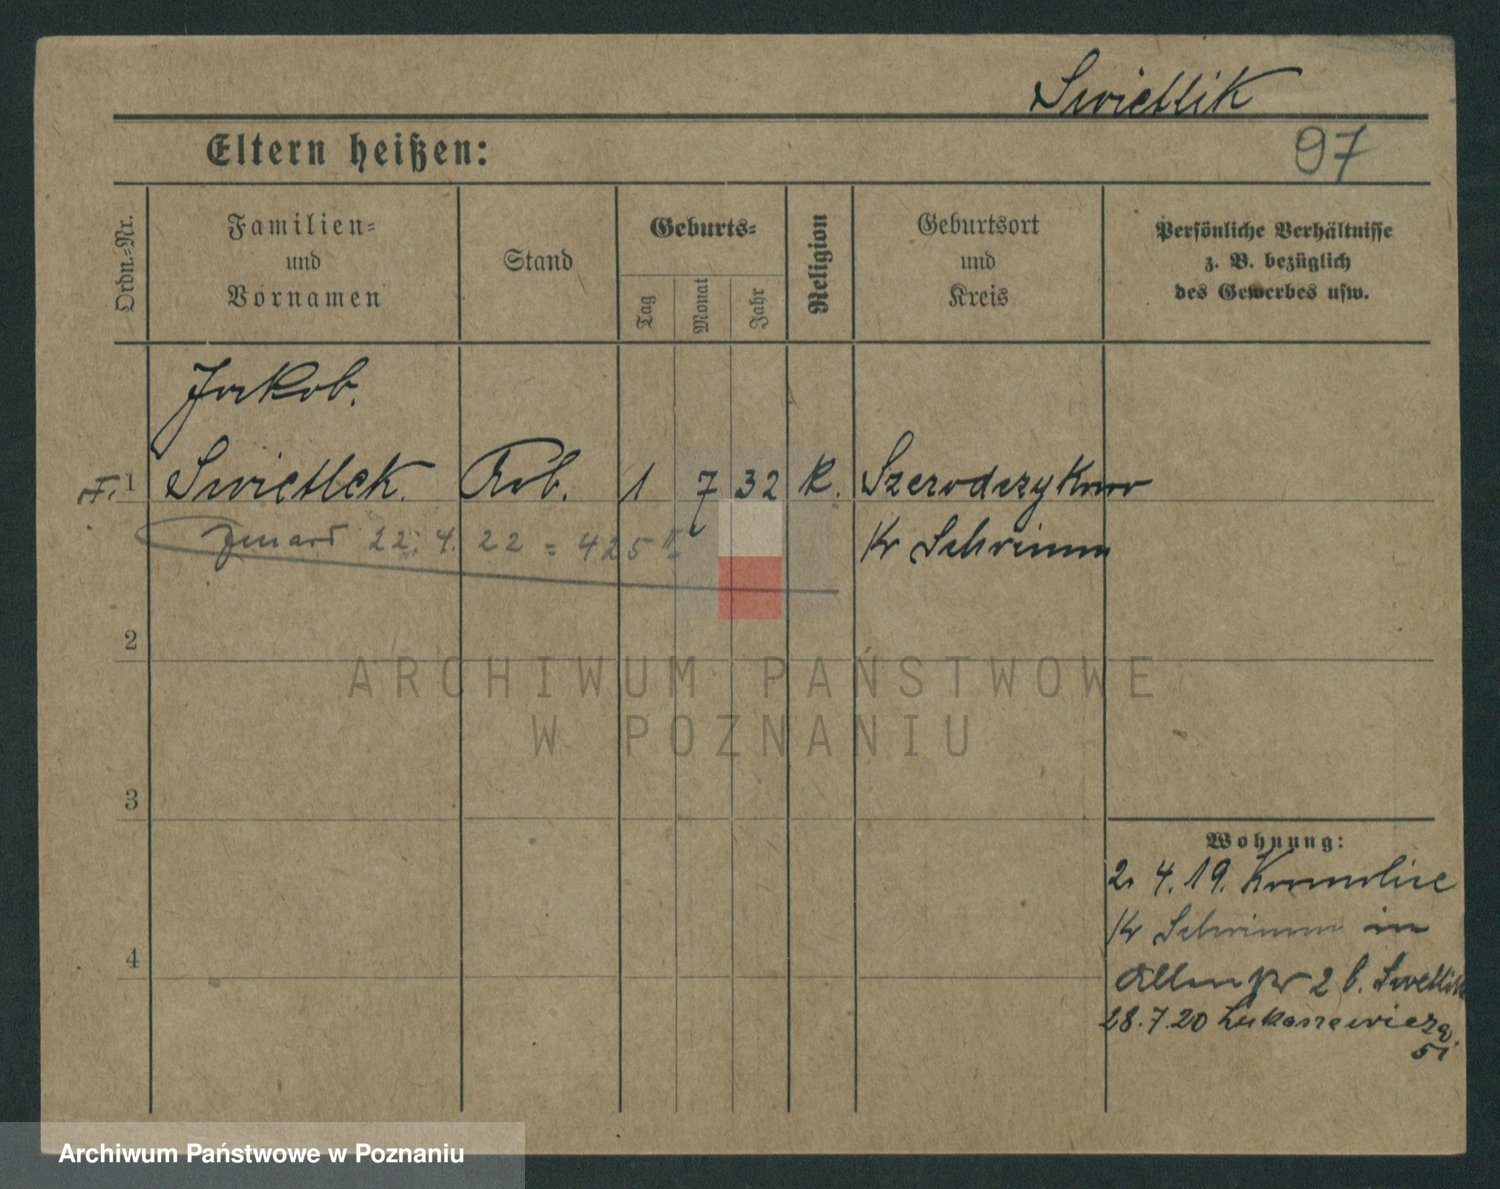 Swietlik
Eltern heißen:
97
Ordn.-Nr.
Familien-
und
Vornamen
Stand
Geburts-
Tag
Monat
Jahr
Religion
Geburtsort
und
Kreis
Persönliche Verhältnisse
z. B. bezüglich
des Gewerbes usw.
Jakob.
1 Swietlek. Arb. 1 7 32 K.
Kr Schrimm
22. 4. 22 = 425
2
3
4
ARCHIWUM PAŃSTWOWE
W POZNANIU
Wohnung:
2. 4. 19.
Kr Schrimm in
2 b. Swetlik
28.7.20 Lukaszewicza
51
Archiwum Państwowe w Poznaniu